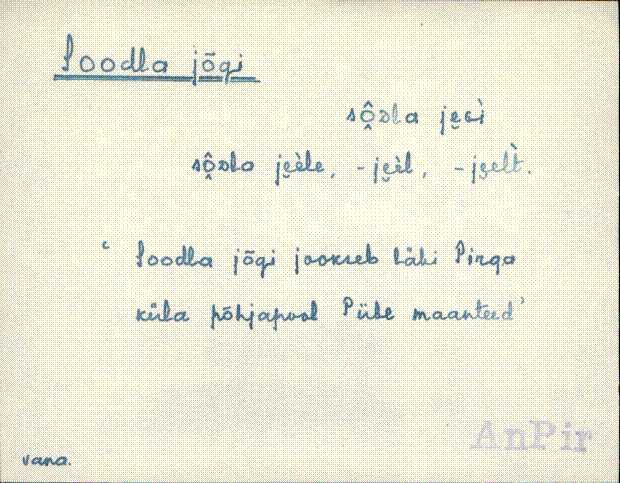 Soodla jõgi
sô̭ᴅla je̮ɢì
sô̭ᴅla je̮èle, -je̮èl, -je̮elt̀.
‘ Soodla jõgi jookseb läbi Pirga
küla põhjapool Piibe maanteed’
AnPir
vana.